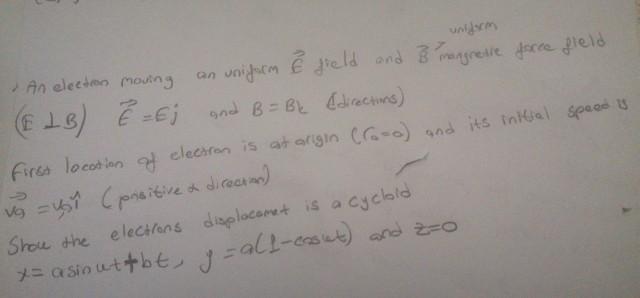 uniform
An electron moving an uniform E⃗ field and B⃗ mangnetic force field
(E ⊥ B) E⃗ = Ej and B = Bk (directions)
First location of electron is at origin (r₀=0) and its initial speed is
v⃗₀ = v₀î (positive x direction)
Show the electrons displacemet is a cycloid
x = a sin wt + bt, y = a(1-coswt) and z=0